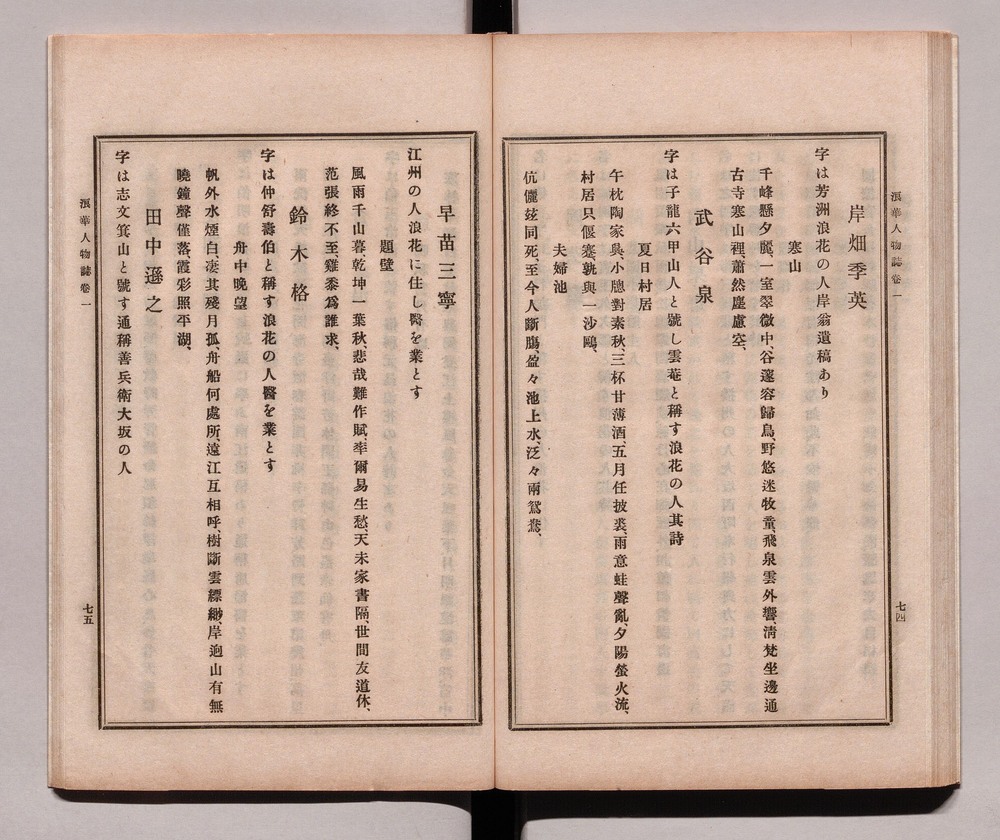 浪華人物誌卷一
七四
岸畑季英
字は芳洲浪花の人岸翁遺稿あり
寒山
千峰懸夕麗、一室翠微中、谷邃容歸鳥、野悠迷牧童、飛泉雲外響、清梵坐邊通
古寺寒山裡、蕭然塵慮空、
武谷泉
字は子龍六甲山人と號し雲菴と稱す浪花の人其詩
夏日村居
午枕陶家與、小牕對素秋、三杯甘薄酒、五月任披裘、雨意蛙聲亂、夕陽螢火流、
村居只偃蹇、孰與一沙鷗、
夫婦池
伉儷玆同死、至今人斷膓、盈々池上水、泛々兩鴛鴦、
早苗三寧
江州の人浪花に住し醫を業とす
題壁
風雨千山暮、乾坤一葉秋、悲哉難作賦、率爾易生愁、天未家書隔、世間友道休、
范張終不至、雞黍爲誰求、
鈴木格
字は仲舒壽伯と稱す浪花の人醫を業とす
舟中晚望
帆外水煙白、凄其殘月孤、舟船何處所、遠江互相呼、樹斷雲縹緲、岸迴山有無
曉鐘聲僅落、霞彩照平湖、
田中遜之
字は志文箕山と號す通稱善兵衛大坂の人
浪華人物誌卷一
七五